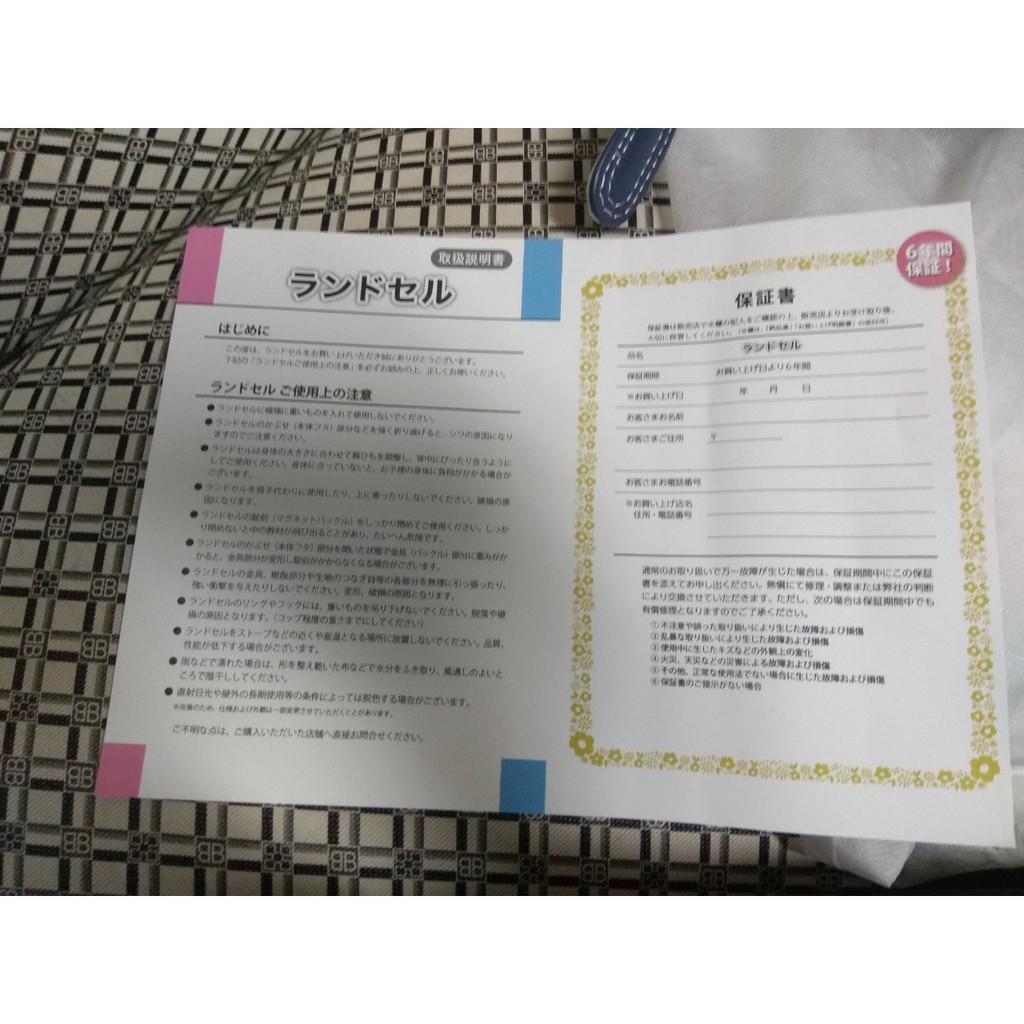 取扱説明書
ランドセル
はじめに
この度は、ランドセルをお買い上げいただき誠にありがとうございます。
下記の「ランドセルご使用上の注意」を必ずお読みの上、正しくお使いください。
ランドセル ご使用上の注意
●ランドセルに極端に重いものを入れて使用しないでください。
●ランドセルのかぶせ(本体フタ)部分などを強く折り曲げると、シワの原因になり
ますのでご注意ください。
●ランドセルは身体の大きさに合わせて肩ひもを調整し、背中にぴったり合うように
してご使用ください。身体に合っていないと、お子様の身体に負担がかかる場合が
ございます。
●ランドセルを椅子代わりに使用したり、上に乗ったりしないでください。破損の原
因になります。
●ランドセルの錠前(マグネットバックル)をしっかり閉めてご使用ください。しっか
り閉めないと中の教材が飛び出ることがあり、たいへん危険です。
●ランドセルのかぶせ(本体フタ)部分を開いた状態で金具(バックル)部分に重みがか
かると、金具部分が変形し錠前がかからなくなる場合がございます。
●ランドセルの金具、樹脂部分や生地のつなぎ目等の各部分を無理に引っ張ったり、
強い衝撃を与えたりしないでください。変形、破損の原因となります。
●ランドセルのリングやフックには、重いものを吊り下げないでください。脱落や破
損の原因となります。(コップ程度の重さまでにしてください)
●ランドセルをストーブなどの近くや高温となる場所に放置しないでください。品質、
性能が低下する場合がございます。
●雨などで濡れた場合は、形を整え乾いた布などで水分をふき取り、風通しのよいと
ころで陰干ししてください。
●直射日光や屋外の長期使用等の条件によっては脱色する場合がございます。
※改善のため、仕様および外観は一部変更させていただくことがあります。
ご不明な点は、ご購入いただいた店舗へ直接お問合せください。
6年間
保証!
保証書
保証書は販売店で※欄の記入をご確認の上、販売店よりお受け取り後、
大切に保管してください。(※欄は、「納品書」「お買い上げ明細書」の添付可)
品名 ランドセル
保証期間 お買い上げ日より6年間
※お買い上げ日 年 月 日
お客さまお名前
お客さまご住所 〒
お客さまお電話番号
※お買い上げ店名
住所・電話番号
通常のお取り扱いで万一故障が生じた場合は、保証期間中にこの保証
書を添えてお申し出ください。無償にて修理・調整または弊社の判断
により交換させていただきます。ただし、次の場合は保証期間中でも
有償修理となりますのでご了承ください。
①不注意や誤った取り扱いにより生じた故障および損傷
②乱暴な取り扱いにより生じた故障および損傷
③使用中に生じたキズなどの外観上の変化
④火災、天災などの災害による故障および損傷
⑤その他、正常な使用法でない場合に生じた故障および損傷
⑥保証書のご提示がない場合